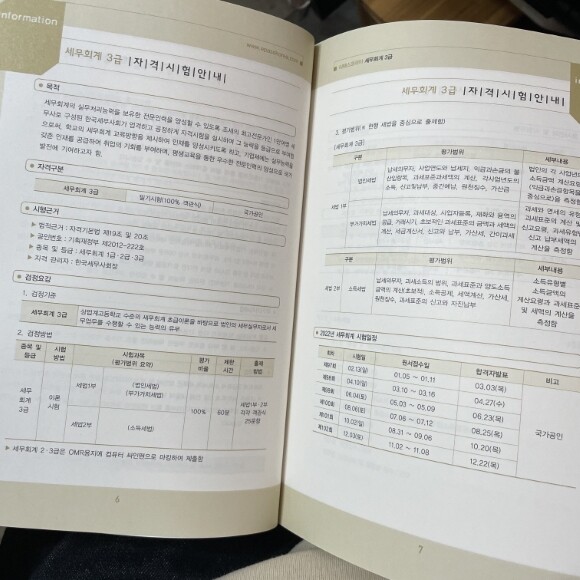 Information
세무회계 3급 |자|격|시|험|안|내|
목적
세무회계의 실무처리능력을 보유한 전문인력을 양성할 수 있도록 조세의 최고전문가인 1만여명 세
무사로 구성된 한국세무사회가 엄격하고 공정하게 자격시험을 실시하여 그 능력을 등급으로 부여함
으로써, 학교의 세무회계 교육방향을 제시하여 인재를 양성시키도록 하고, 기업체에는 실무능력을
갖춘 인재를 공급하여 취업의 기회를 부여하며, 평생교육을 통한 우수한 전문인력의 양성으로 국가
발전에 기여하고자 함.
자격구분
세무회계 3급 필기시험(100% 객관식) 국가공인
시행근거
▶ 법적근거 : 자격기본법 제19조 및 20조
▶ 공인번호 : 기획재정부 제2012-222호
▶ 종목 및 등급 : 세무회계 1급·2급·3급
▶ 자격 관리자 : 한국세무사회장
검정요강
1. 검정기준
세무회계 3급 상업계고등학교 수준의 세무회계 초급이론을 바탕으로 법인의 세무실무자로서 세
무업무를 수행할 수 있는 능력의 유무.
2. 검정방법
종목 및 등급 시험방법 시험과목 (평가범위 요약) 평가비율 제한시간 출제방법
세무회계 3급 이론시험 세법1부 (법인세법) (부가가치세법) 100% 60분 세법1부·2부 각각 객관식 25문항
세법2부 (소득세법)
▶ 세무회계 2·3급은 OMR용지에 컴퓨터 싸인펜으로 마킹하여 제출함
6
세무회계 3급
세무회계 3급 |자|격|시|험|안|내|
3. 평가범위(※ 현행 세법을 중심으로 출제함)
구분 평가범위 세부내용
세법 1부 법인세법 납세의무자, 사업연도와 납세지, 익금과손금의 불
산입항목, 과세표준과세액의 계산, 각사업연도의
소득, 신고및납부, 중간예납, 원천징수, 가산금
법인의 각 사업연도
소득금액 계산요령
(익금과손금항목을
중심으로)을 측정함
부가가치세법 납세의무자, 과세대상, 사업자등록, 재화와 용역의
공급, 거래시기, 초보적인 과세표준과 세액의
계산, 세금계산서, 신고와 납부, 가산세, 간이과세
과세와 면세의 유형
과 과세표준 계산 및
신고요령, 과세유형별
신고, 납부세액의
계산을 측정함
구분 평가범위 세부내용
세법 2부 소득세법 납세의무자, 과세소득의 범위, 과세표준과 양도소득
금액의 계산(초보적), 소득공제, 세액계산, 가산세,
원천징수, 과세표준의 신고와 자진납부
소득유형별
소득금액의
계산요령과 과세표준
및 세액의 계산을
측정함
2022년 세무회계 시험일정
회차 시험일 원서접수일 합격자발표 비고
제97회 02.13(일) 01.05 ~ 01.11 03.03(목)
제98회 04.10(일) 03.10 ~ 03.16 04.27(수)
제99회 06.04(토) 05.03 ~ 05.09 06.23(목)
제100회 08.06(토) 07.06 ~ 07.12 08.25(목) 국가공인
제101회 10.02(일) 08.31 ~ 09.06 10.20(목)
제102회 12.03(토) 11.02 ~ 11.08 12.22(목)
7